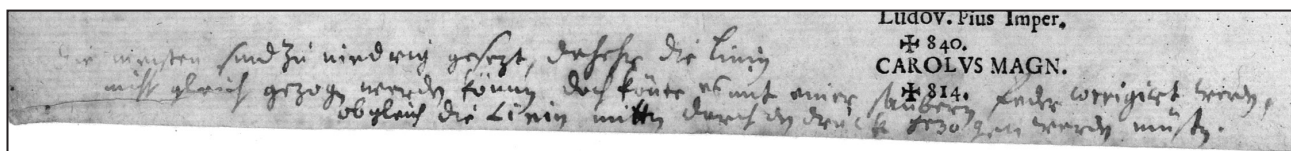 Ludov. Pius Imper.
✠ 840.
CAROLVS MAGN.
✠ 814.
die meisten sind zu niedrig gesezt, daher die linien
nicht gleich gezogen werden können doch könte es mit einer saubern feder corrigirt werden,
obgleich die Linien mitten durch den druck gezogen werden müsten.